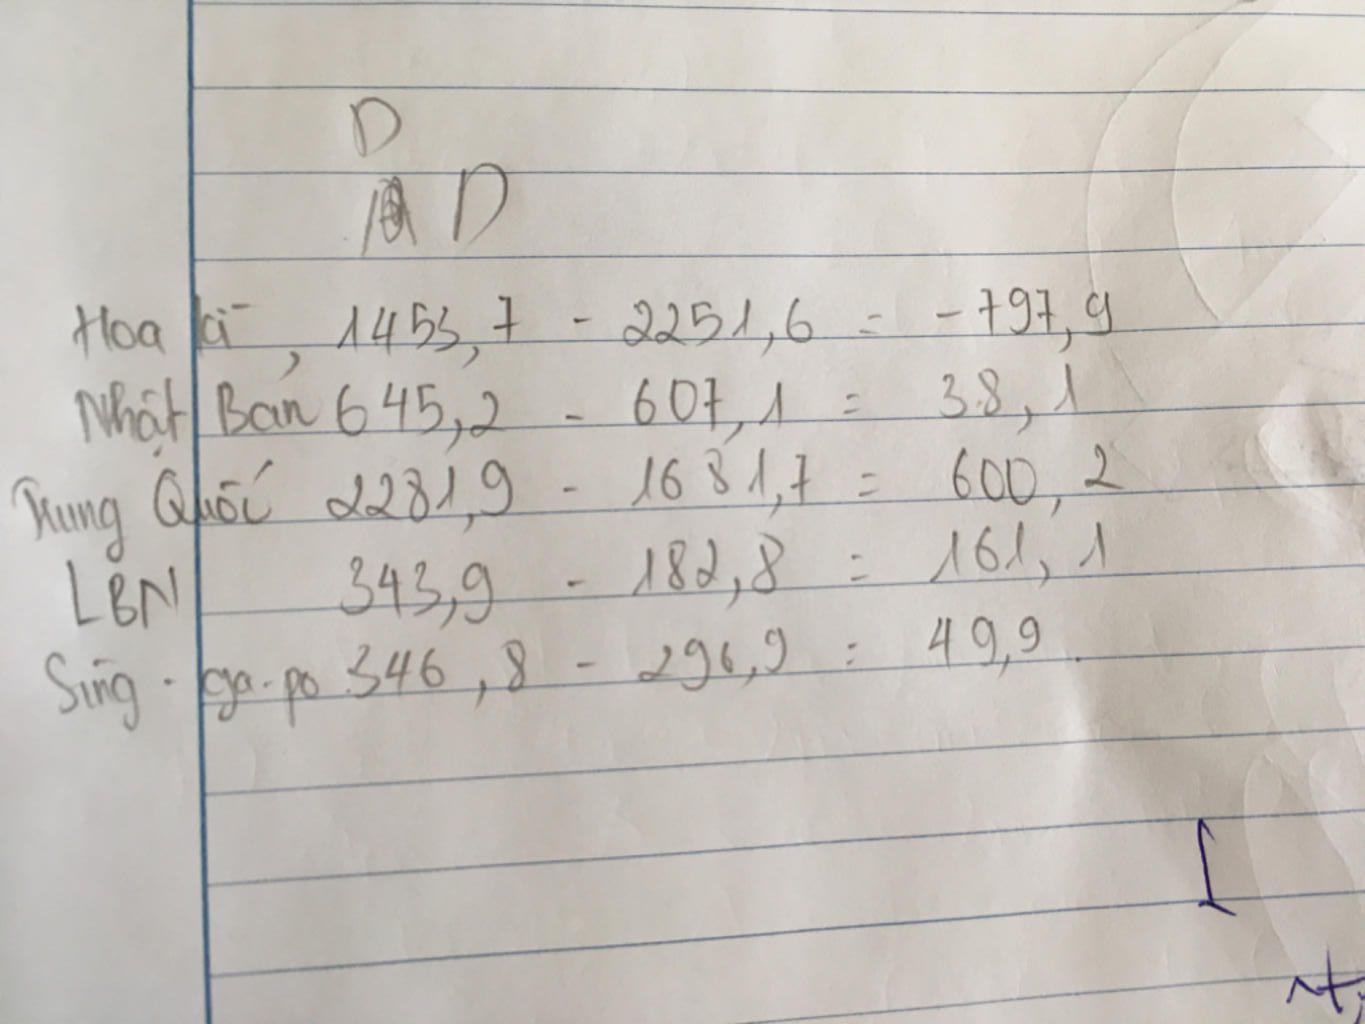 D
D
Hoa kì, 1453,7 - 2251,6 = -797,9
Nhật Bản 645,2 - 607,1 = 38,1
Trung Quốc 2281,9 - 1681,7 = 600,2
LBN 343,9 - 182,8 = 161,1
Sing-ga-po 346,8 - 296,9 = 49,9